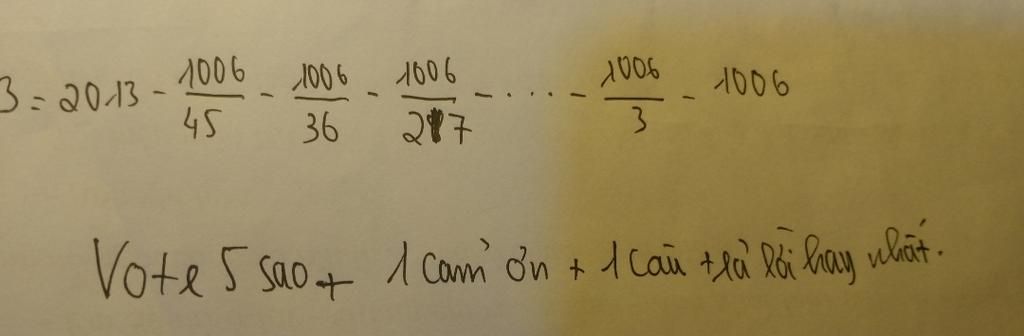 3 = 2013 - 1006/45 - 1006/36 - 1006/27 - .... - 1006/3 - 1006
Vote 5 sao + 1 cảm ơn + 1 câu trả lời hay nhất.